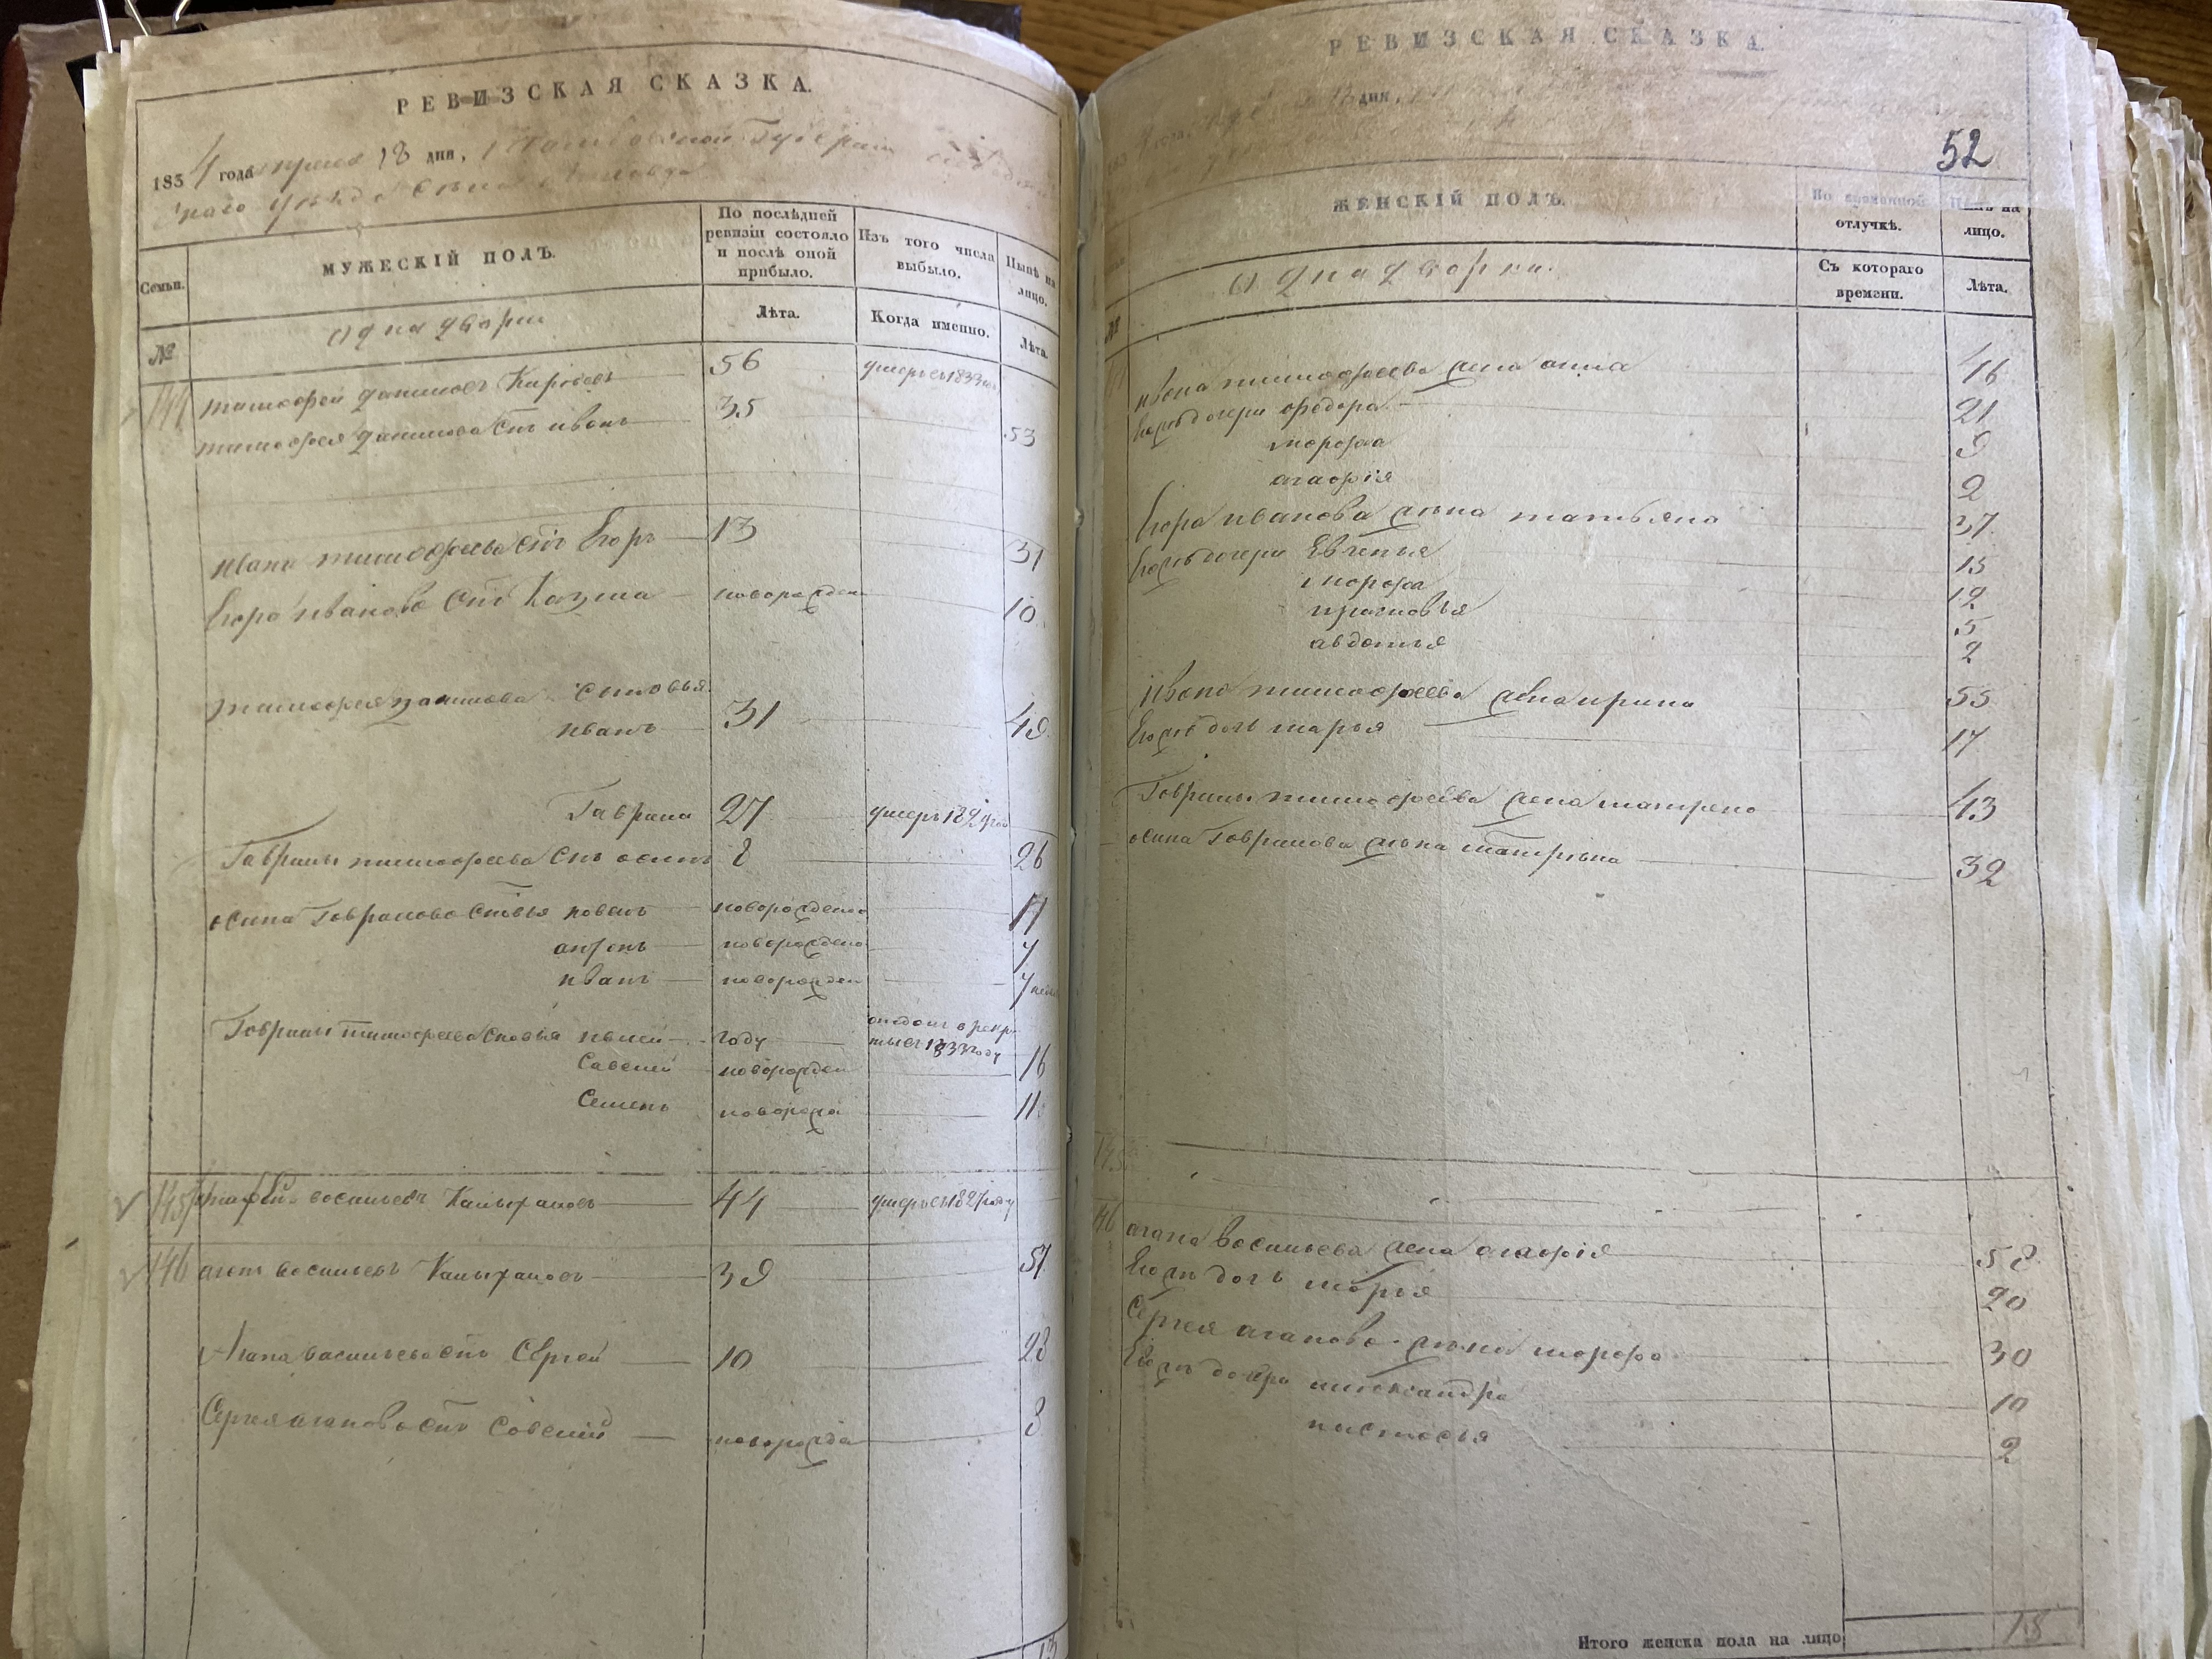 РЕВИЗСКАЯ СКАЗКА.
1834 года апреля 18 дня, Тамбовской Губернии
наго уезда Села
Семьи.
МУЖЕСКІЙ ПОЛЪ.
По послѣдней ревизіи состояло и послѣ оной прибыло.
Изъ того числа выбыло.
Нынѣ на лицо.
№
однадворцы
Лѣта.
Когда именно.
Лѣта.
тимофей данилов 56 умеръ въ 1833
тимофея данилова Снъ иванъ 35 53
ивана тимофеева Снъ Егоръ 13 31
Егора иванова Снъ Козма новорожден 10
тимофея данилова Сыновья
иванъ 31 49
Гаврила 27 умеръ 1829 год
Гаврилы тимофеева Снъ осипъ 8 26
осипа Гаврилова Сновья новорожденой 17
новорожден 7
иванъ новорожден 7
Гаврилы тимофеева Сновья году отдан в рекр
ты въ 1833 году
Савелий новорожден 16
Семенъ новорож 11
145 васильевъ 44 умеръ въ 1827 году
146 агап васильевъ 39 57
Агапа васильева Снъ Сергей 10 28
Сергея агапова Снъ Савелий новорожде 3
13
РЕВИЗСКАЯ СКАЗКА.
дня,
52
ЖЕНСКІЙ ПОЛЪ.
Во временной отлучкѣ.
Нынѣ на лицо.
№
однадворки.
Съ котораго времени.
Лѣта.
ивана тимофеева жена анна 46
Его дочери федора 21
марфа 9
агафія 2
Егора иванова жена татьяна 37
Его дочери Евгенья 15
марфа 12
прасковья 5
авдотья 2
ивана тимофеева жена ирина 55
Его дочь марья 17
Гаврилы тимофеева жена матрена 43
осипа Гаврилова жена матрена 32
145
146 агапа васильева жена агафія 58
Его дочь марья 20
Сергея агапова жена марфа 30
Его дочери александра 10
настасья 2
Итого женска пола на лицо 18